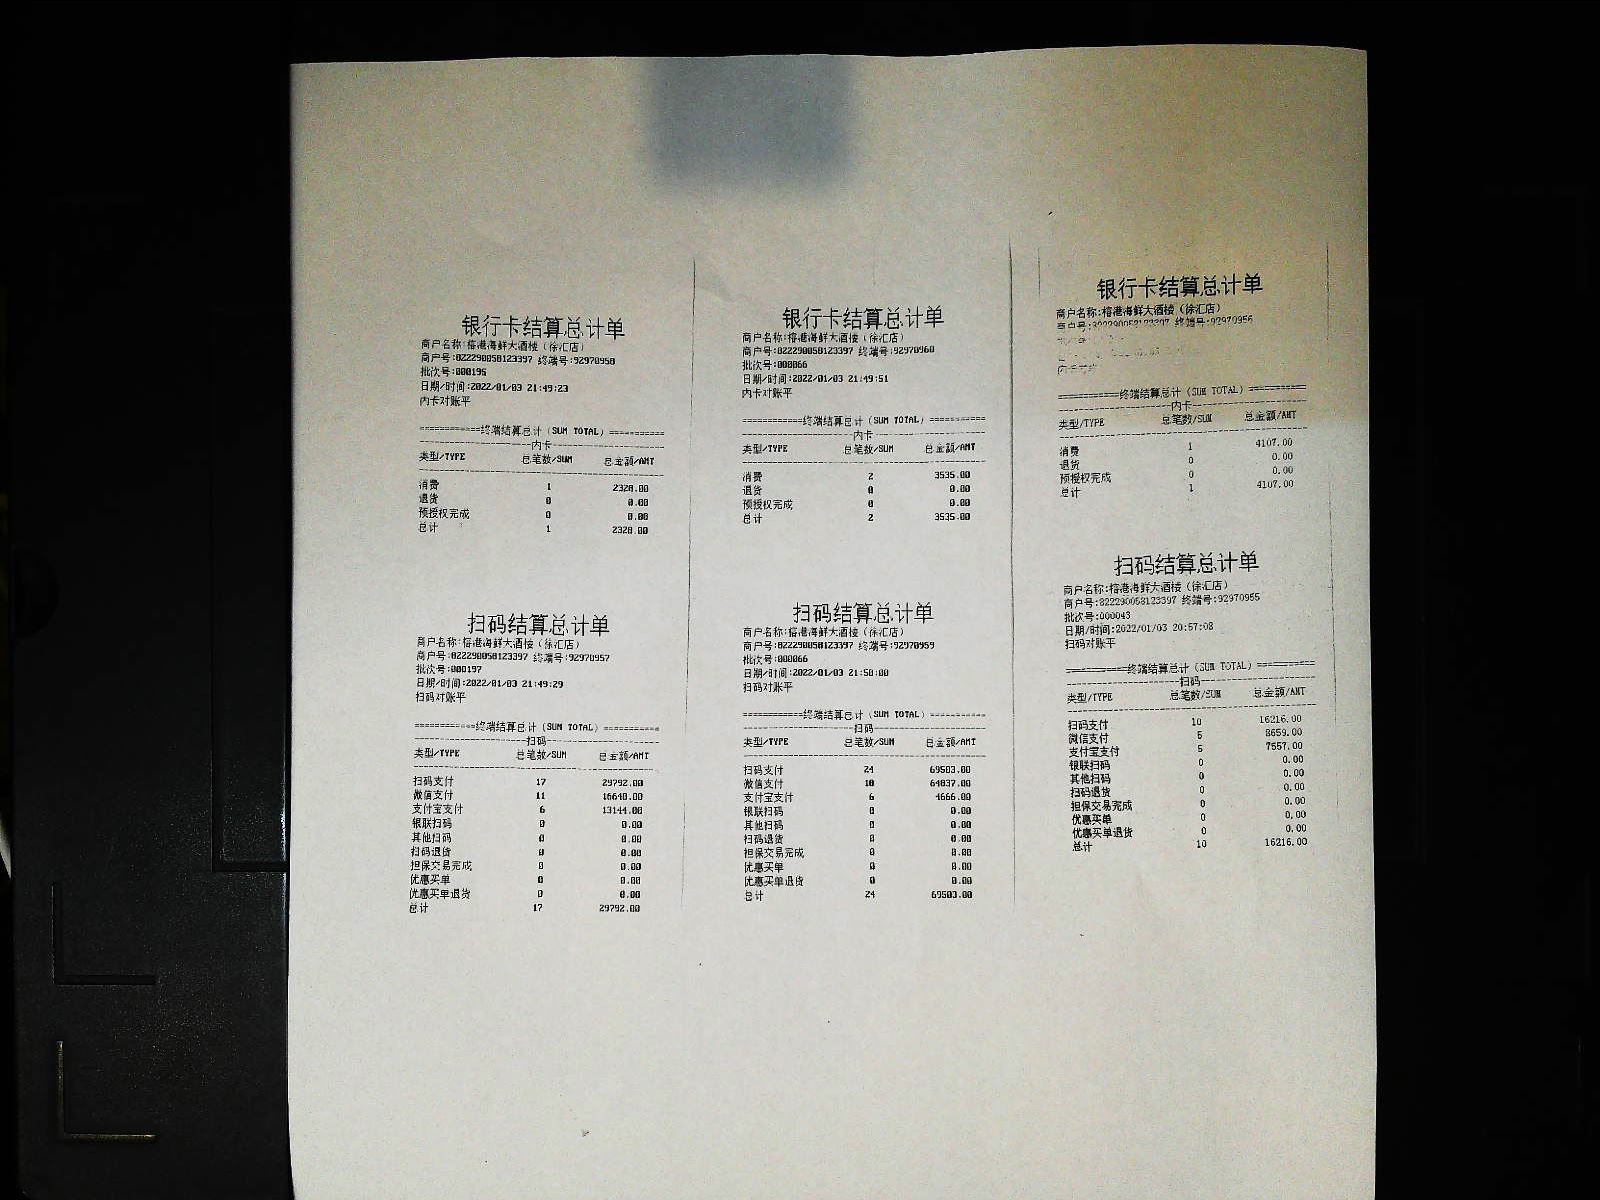 银行卡结算总计单
商户名称:榕港海鲜大酒楼（徐汇店）
商户号:822290058123397 终端号:92970958
批次号:000195
日期/时间:2022/01/03 21:49:23
内卡对账平
============终端结算总计（SUM TOTAL）===========
内卡
类型/TYPE 总笔数/SUM 总金额/AMT
消费 1 2328.00
退货 0 0.00
预授权完成 0 0.00
总计 1 2328.00
扫码结算总计单
商户名称:榕港海鲜大酒楼（徐汇店）
商户号:822290058123397 终端号:92970957
批次号:000197
日期/时间:2022/01/03 21:49:29
扫码对账平
============终端结算总计（SUM TOTAL）===========
扫码
类型/TYPE 总笔数/SUM 总金额/AMT
扫码支付 17 29792.00
微信支付 11 16648.00
支付宝支付 6 13144.00
银联扫码 0 0.00
其他扫码 0 0.00
扫码退货 0 0.00
担保交易完成 0 0.00
优惠买单 0 0.00
优惠买单退货 0 0.00
总计 17 29792.00
银行卡结算总计单
商户名称:榕港海鲜大酒楼（徐汇店）
商户号:822290058123397 终端号:92970960
批次号:000066
日期/时间:2022/01/03 21:49:51
内卡对账平
============终端结算总计（SUM TOTAL）===========
内卡
类型/TYPE 总笔数/SUM 总金额/AMT
消费 2 3535.00
退货 0 0.00
预授权完成 0 0.00
总计 2 3535.00
扫码结算总计单
商户名称:榕港海鲜大酒楼（徐汇店）
商户号:822290058123397 终端号:92970959
批次号:000066
日期/时间:2022/01/03 21:50:00
扫码对账平
============终端结算总计（SUM TOTAL）===========
扫码
类型/TYPE 总笔数/SUM 总金额/AMT
扫码支付 24 69503.00
微信支付 18 64837.00
支付宝支付 6 4666.00
银联扫码 0 0.00
其他扫码 0 0.00
扫码退货 0 0.00
担保交易完成 0 0.00
优惠买单 0 0.00
优惠买单退货 0 0.00
总计 24 69503.00
银行卡结算总计单
商户名称:榕港海鲜大酒楼（徐汇店）
商户号:822290058123397 终端号:92970956
============终端结算总计（SUM TOTAL）===========
内卡
类型/TYPE 总笔数/SUM 总金额/AMT
消费 1 4107.00
退货 0 0.00
预授权完成 0 0.00
总计 1 4107.00
扫码结算总计单
商户名称:榕港海鲜大酒楼（徐汇店）
商户号:822290058123397 终端号:92970955
批次号:000043
日期/时间:2022/01/03 20:57:08
扫码对账平
============终端结算总计（SUM TOTAL）===========
扫码
类型/TYPE 总笔数/SUM 总金额/AMT
扫码支付 10 16216.00
微信支付 5 8659.00
支付宝支付 5 7557.00
银联扫码 0 0.00
其他扫码 0 0.00
扫码退货 0 0.00
担保交易完成 0 0.00
优惠买单 0 0.00
优惠买单退货 0 0.00
总计 10 16216.00